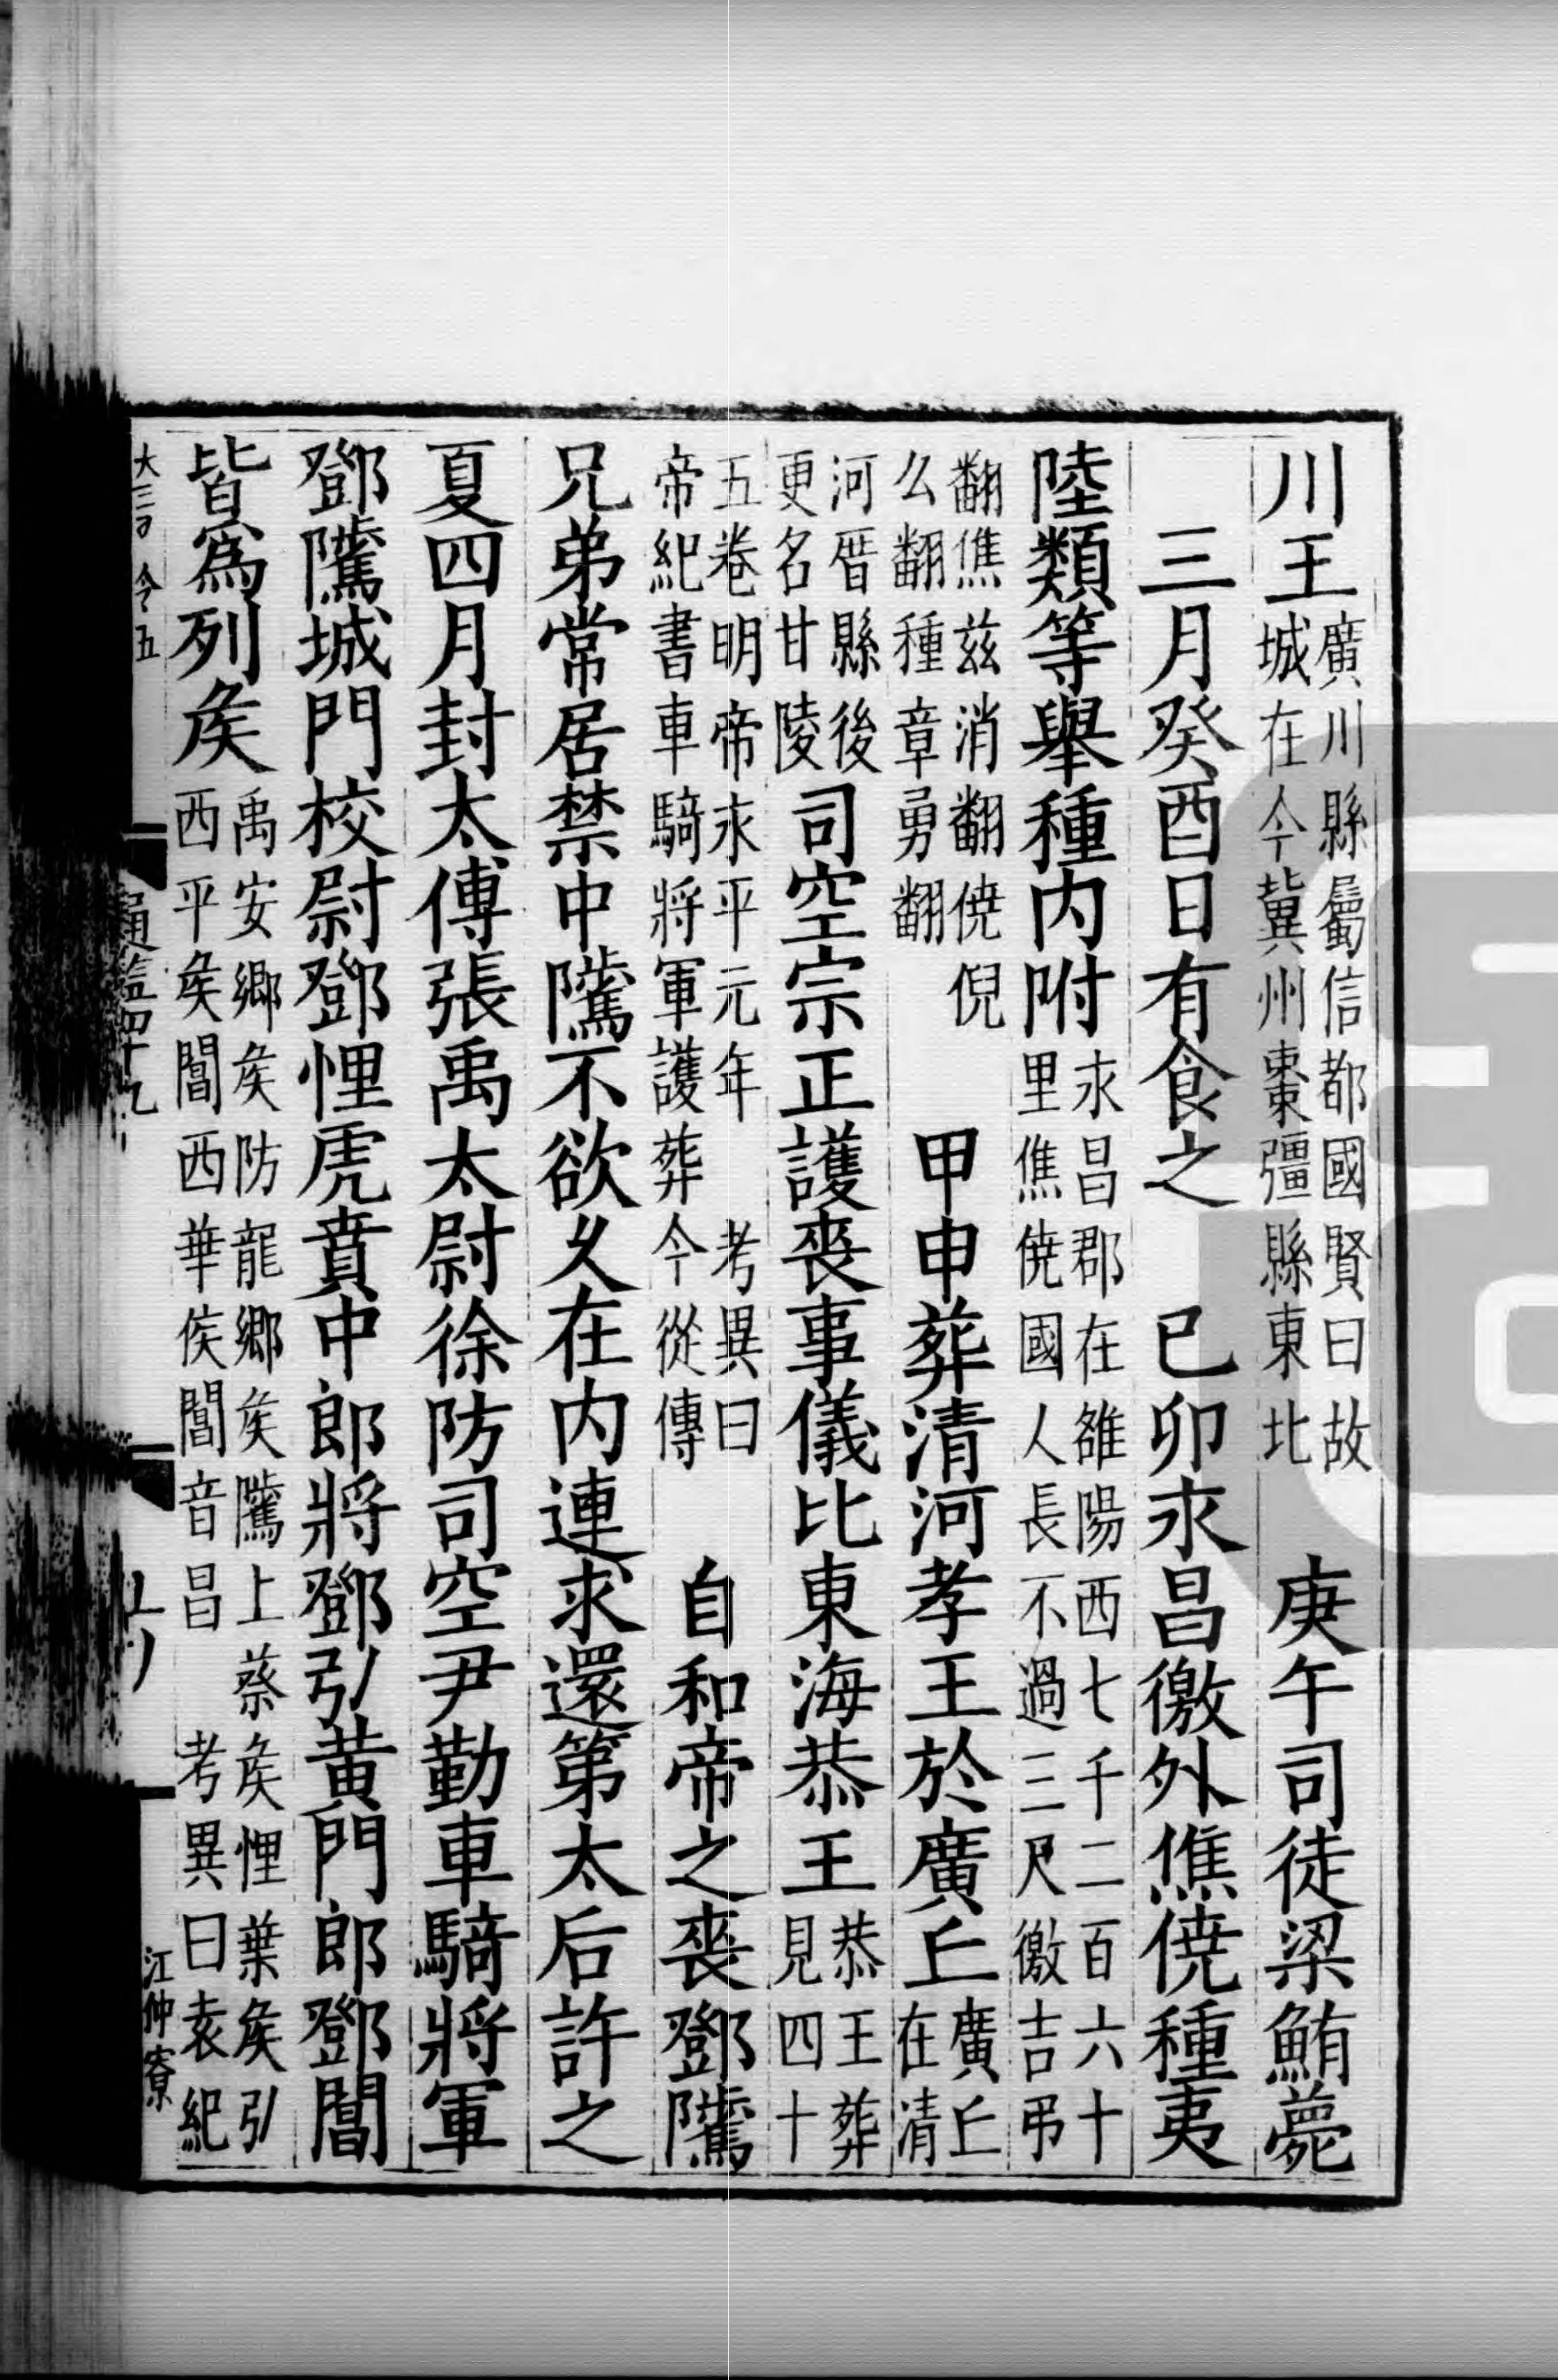 川王廣川縣屬信都國賢曰故城在今冀州棗彊縣東北　庚午司徒梁鮪薨
三月癸酉日有食之　已卯永昌徼外僬僥種夷
陸類等舉種内附永昌郡在雒陽西七千二百六十里僬僥國人長不過三尺徼吉弔
翻僬兹消翻僥倪么翻種章勇翻　甲申葬清河孝王於廣丘廣丘在清
河厝縣後更名甘陵司空宗正護喪事儀比東海恭王恭王葬見四十
五卷明帝永平元年　考異曰帝紀書車騎將軍護葬今從傳　自和帝之喪鄧騭
兄弟常居禁中騭不欲久在内連求還第太后許之
夏四月封太傅張禹太尉徐防司空尹勤車騎將軍
鄧騭城門校尉鄧悝虎賁中郎將鄧弘黄門郎鄧閶
皆爲列侯禹安鄉侯防龍鄉侯騭上蔡侯悝葉侯弘西平侯閶西華侯閶音昌　考異曰袁紀
通鑑四十九
江仲寮